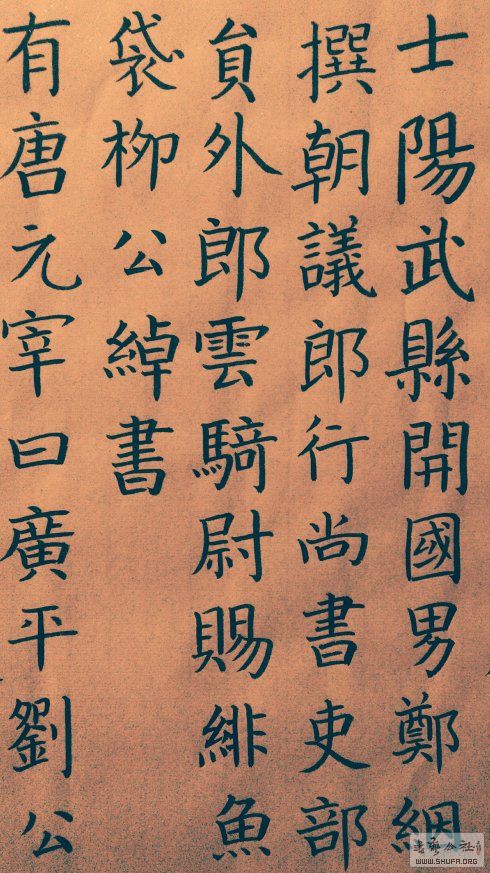 士陽武縣開國男鄭絪
撰朝議郎行尚書吏部
員外郎雲騎尉賜緋魚
袋柳公綽書
有唐元宰曰廣平劉公
WWW.SHUFA.ORG